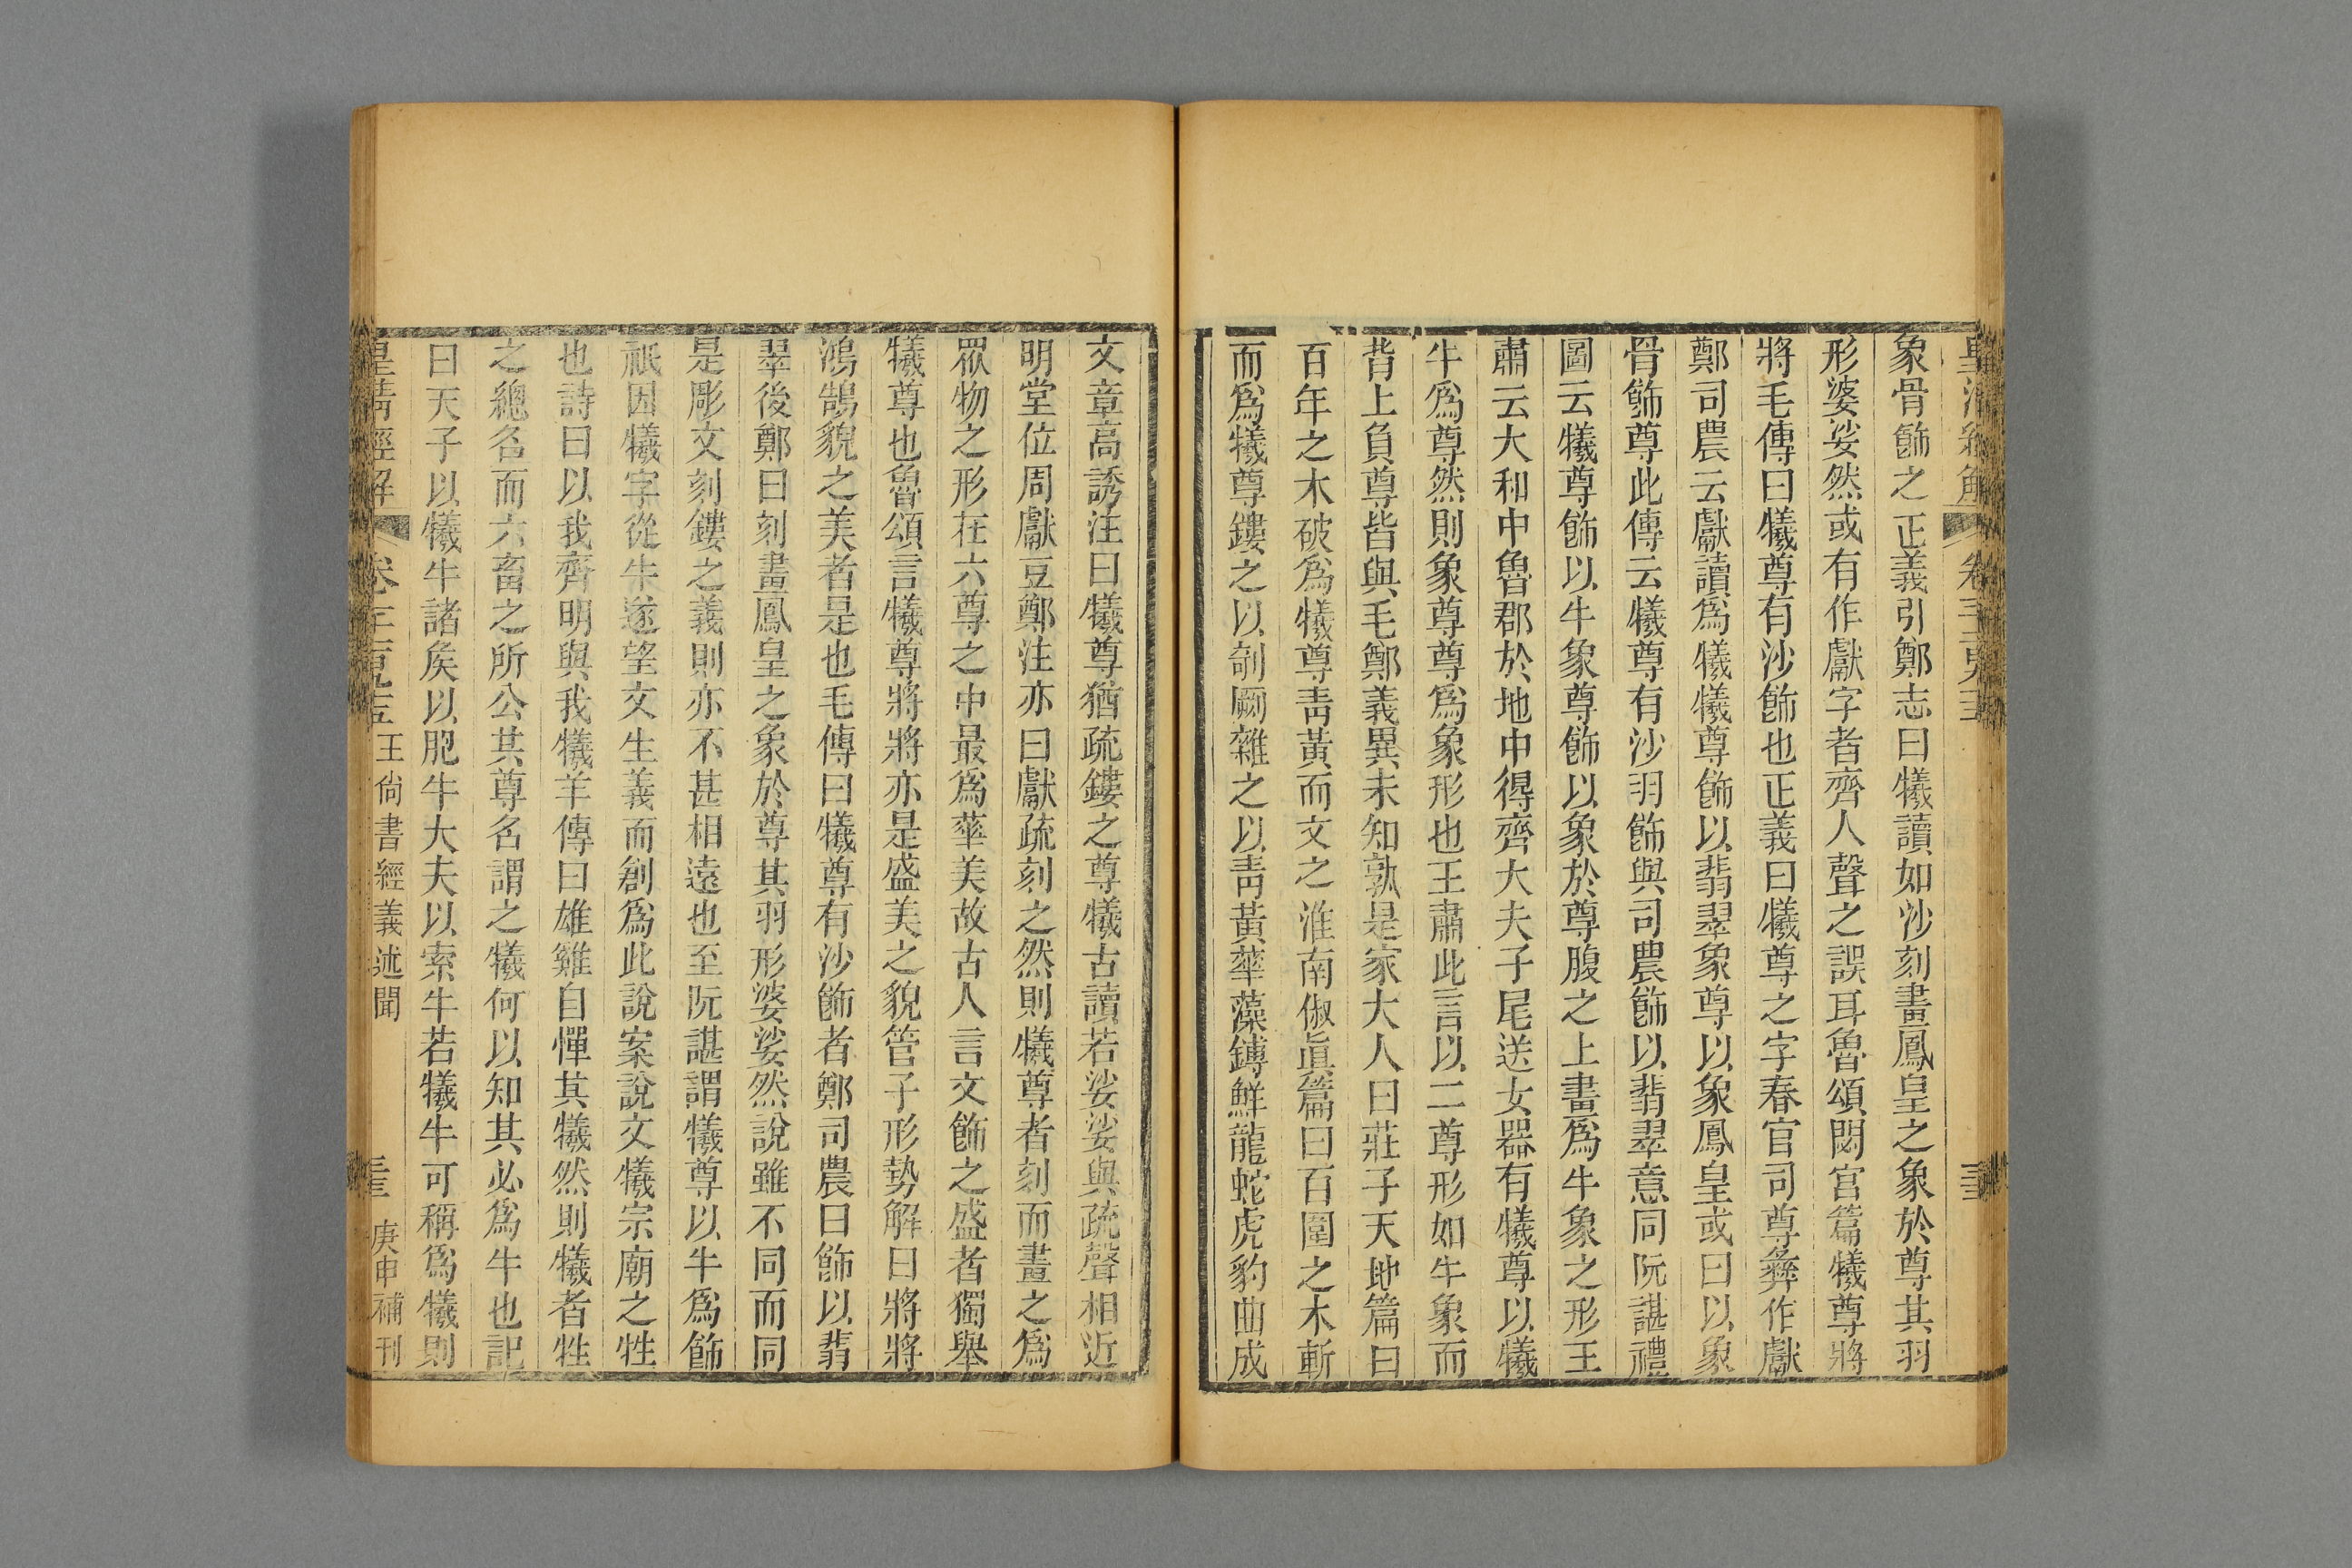 象骨飾之正義引鄭志曰犧讀如沙刻畫鳳皇之象於尊其羽
形婆娑然或有作獻字者齊人聲之誤耳魯頌閟宮篇犧尊將
將毛傳曰犧尊有沙飾也正義曰犧尊之字春官司尊彝作獻
鄭司農云獻讀爲犧犧尊飾以翡翠象尊以象鳳皇或曰以象
骨飾尊此傳云犧尊有沙羽飾與司農飾以翡翠意同阮諶禮
圖云犧尊飾以牛象尊飾以象於尊腹之上畫爲牛象之形王
肅云大和中魯郡於地中得齊大夫子尾送女器有犧尊以犧
牛爲尊然則象尊尊爲象形也王肅此言以二尊形如牛象而
背上負尊皆與毛鄭義異未知孰是家大人曰莊子天地篇曰
百年之木破爲犧尊靑黃而文之淮南俶眞篇曰百圍之木斬
而爲犧尊鏤之以剞劂雜之以靑黃華藻鎛鮮龍蛇虎豹曲成
文章高誘注曰犧尊猶疏鏤之尊犧古讀若娑娑與疏聲相近
明堂位周獻豆鄭注亦曰獻疏刻之然則犧尊者刻而畫之爲
眾物之形在六尊之中最爲華美故古人言文飾之盛者獨舉
犧尊也魯頌言犧尊將將亦是盛美之貌管子形勢解曰將將
鴻鵠貌之美者是也毛傳曰犧尊有沙飾者鄭司農曰飾以翡
翠後鄭曰刻畫鳳皇之象於尊其羽形婆娑然說雖不同而同
是彫文刻鏤之義則亦不甚相遠也至阮諶謂犧尊以牛爲飾
祇因犧字從牛遂望文生義而創爲此說案說文犧宗廟之牲
也詩曰以我齊明與我犧羊傳曰雄雞自憚其犧然則犧者牲
之總名而六畜之所公其尊名謂之犧何以知其必爲牛也記
曰天子以犧牛諸矦以肥牛大夫以索牛若犧牛可稱爲犧則
皇清經解 王尙書經義述聞 庚申補刊